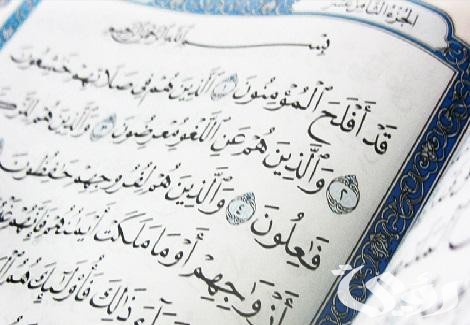 الجزء الثامن عشر
بسم الله الرحمن الرحيم
قَدْ أَفْلَحَ الْمُؤْمِنُونَ ١ الَّذِينَ هُمْ فِي صَلَاتِهِمْ خَاشِعُونَ
٢ وَالَّذِينَ هُمْ عَنِ اللَّغْوِ مُعْرِضُونَ ٣ وَالَّذِينَ هُمْ
فَاعِلُونَ ٤ وَالَّذِينَ هُمْ لِفُرُوجِهِمْ حَافِظُونَ
أَزْوَاجِهِمْ أَوْ مَا مَلَكَتْ أَيْمَانُهُمْ فَإِنَّهُمْ
ذَلِكَ فَأُولَئِكَ هُمُ